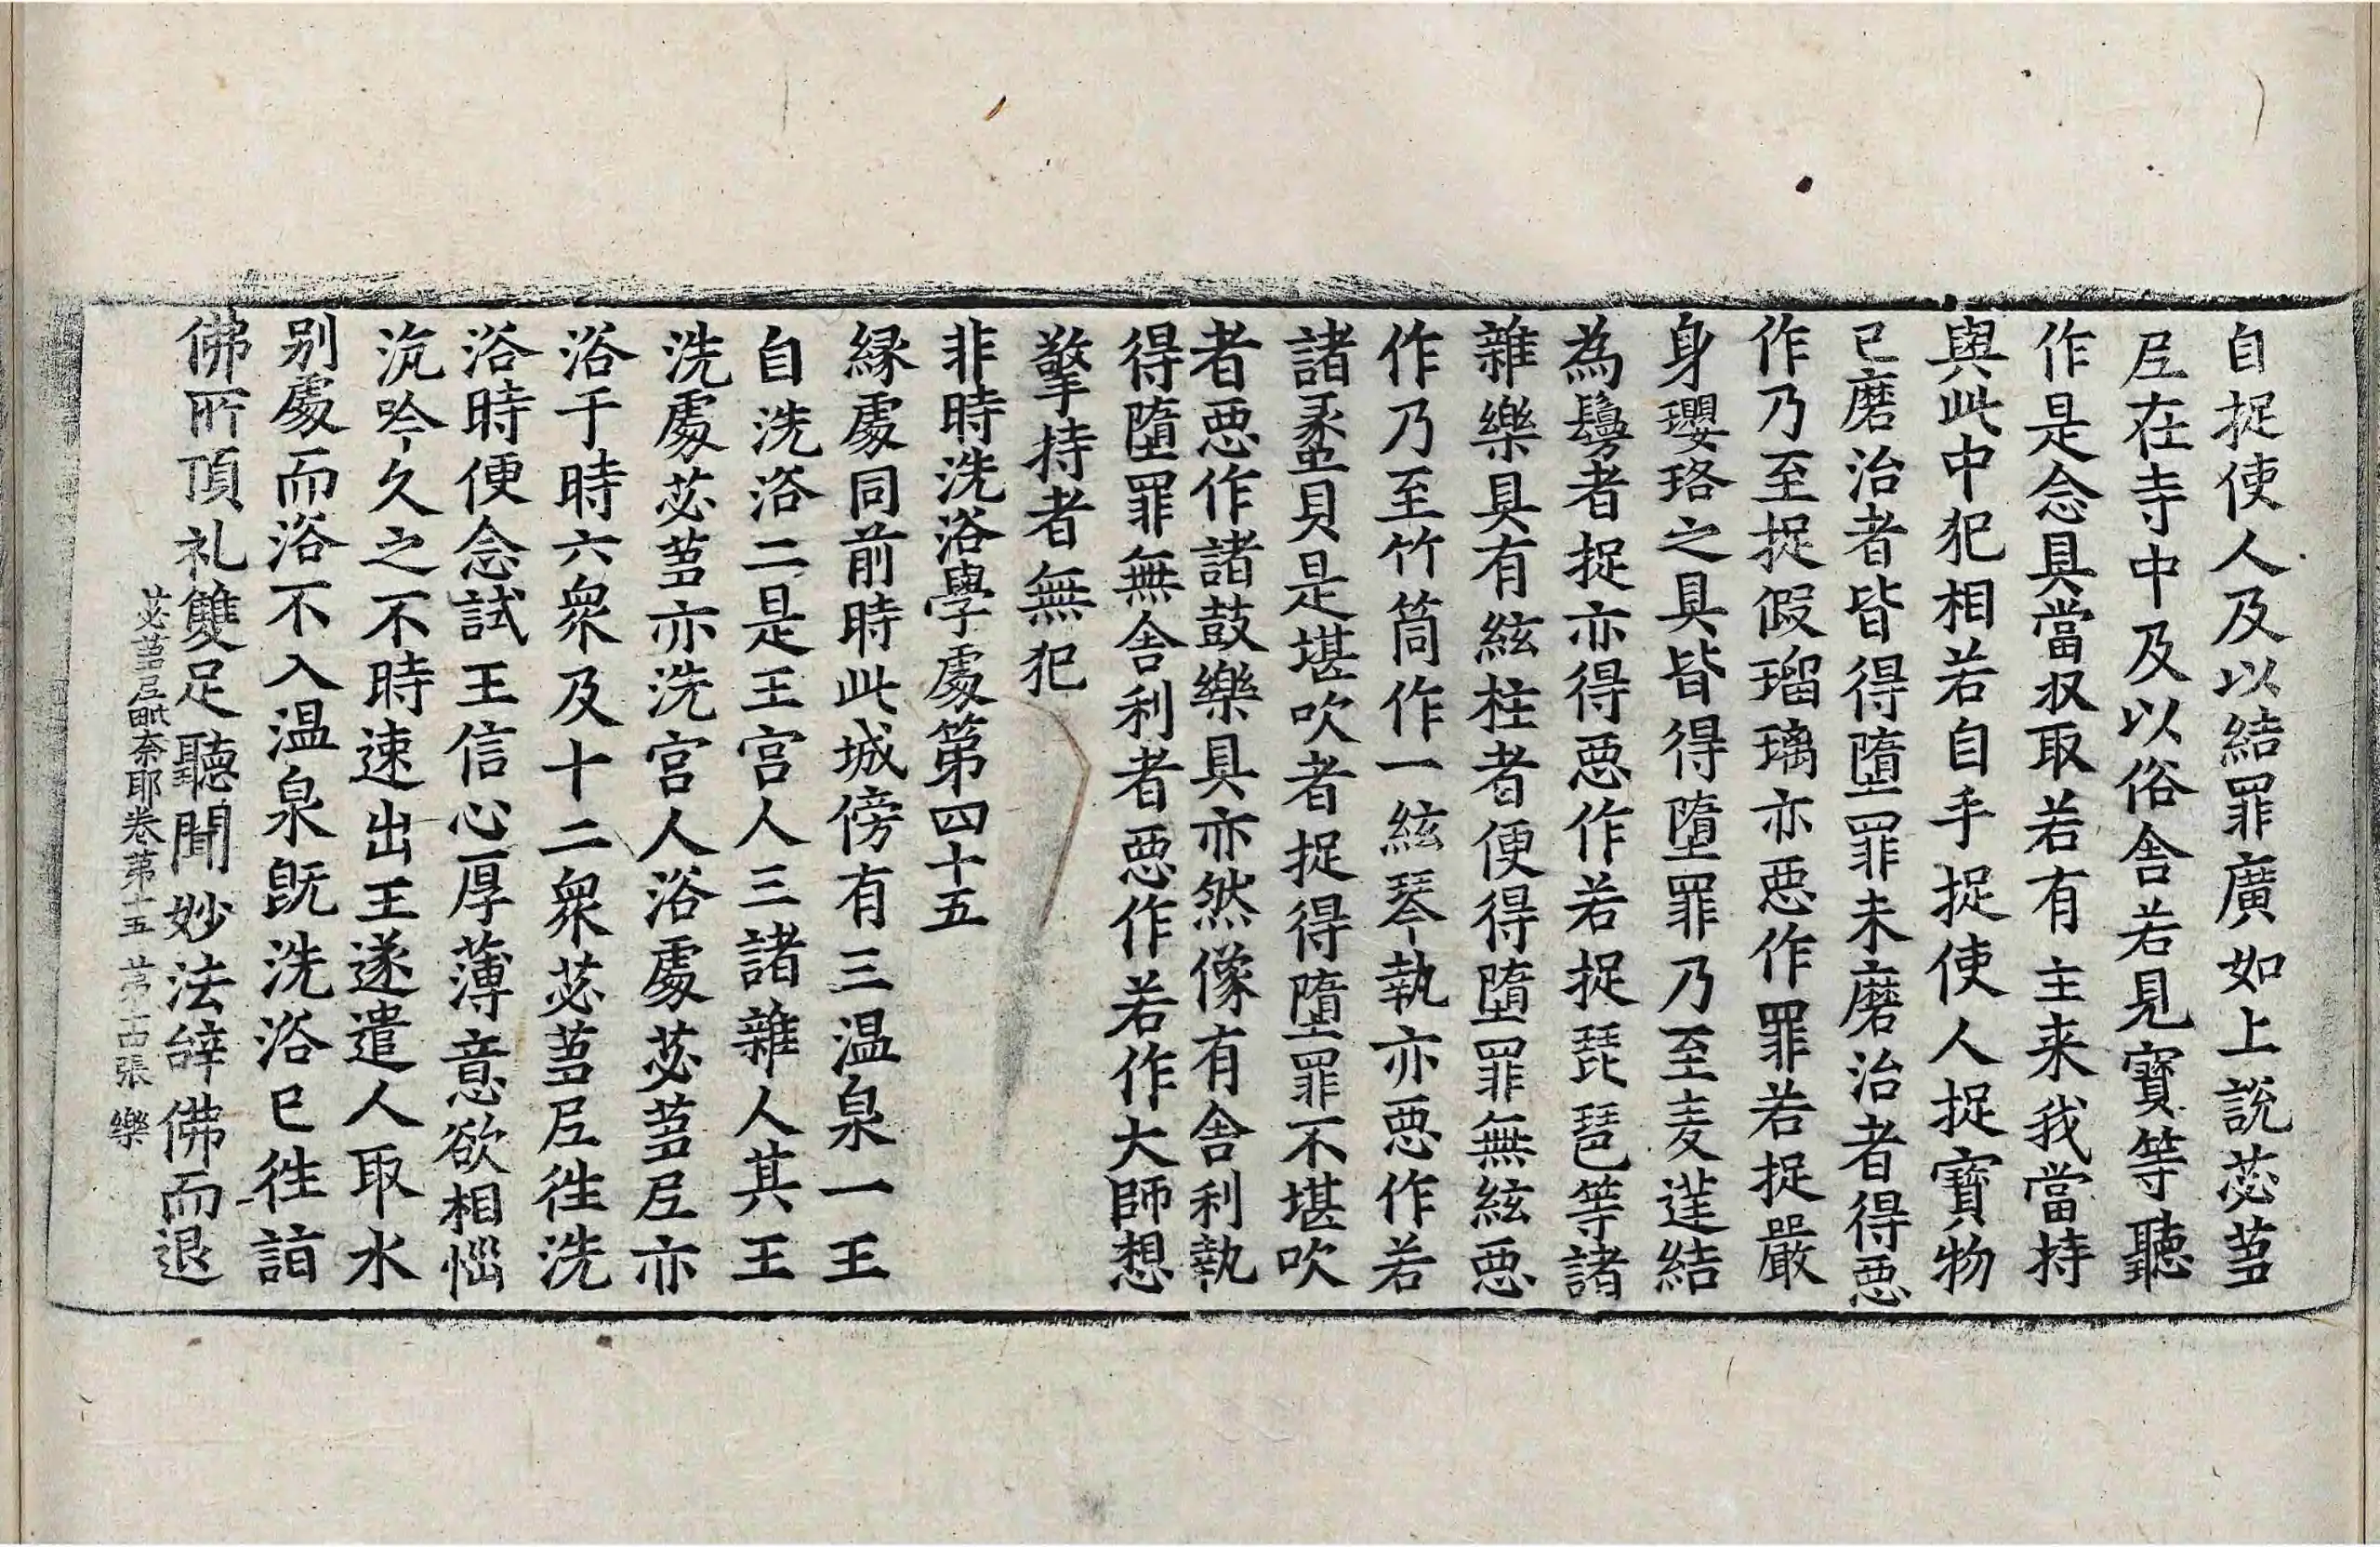 自捉使人及以結罪廣如上說苾蒭
尼在寺中及以俗舍若見寶等聽
作是念具當収取若有主来我當持
與此中犯相若自手捉使人捉寶物
已磨治者皆得墮罪未磨治者得惡
作乃至捉假瑠璃亦惡作罪若捉嚴
身瓔珞之具皆得墮罪乃至麦莛結
為鬘者捉亦得惡作若捉琵琶等諸
雜樂具有絃柱者便得墮罪無絃惡
作乃至竹筒作一絃琴執亦惡作若
諸蠡貝是堪吹者捉得墮罪不堪吹
者惡作諸鼓樂具亦然像有舍利執
得墮罪無舍利者惡作若作大師想
擎持者無犯
非時洗浴學處第四十五
緣處同前時此城傍有三温泉一王
自洗浴二是王宫人三諸雜人其王
洗處苾蒭亦洗宫人浴處苾蒭尼亦
浴于時六衆及十二衆苾蒭尼往洗
浴時便念試王信心厚薄意欲相惱
沉吟久之不時速出王遂遣人取水
别處而浴不入温泉既洗浴已往詣
佛所頂礼雙足聽聞妙法辭佛而退
苾蒭尼毗奈耶卷第十五 第十四張 樂